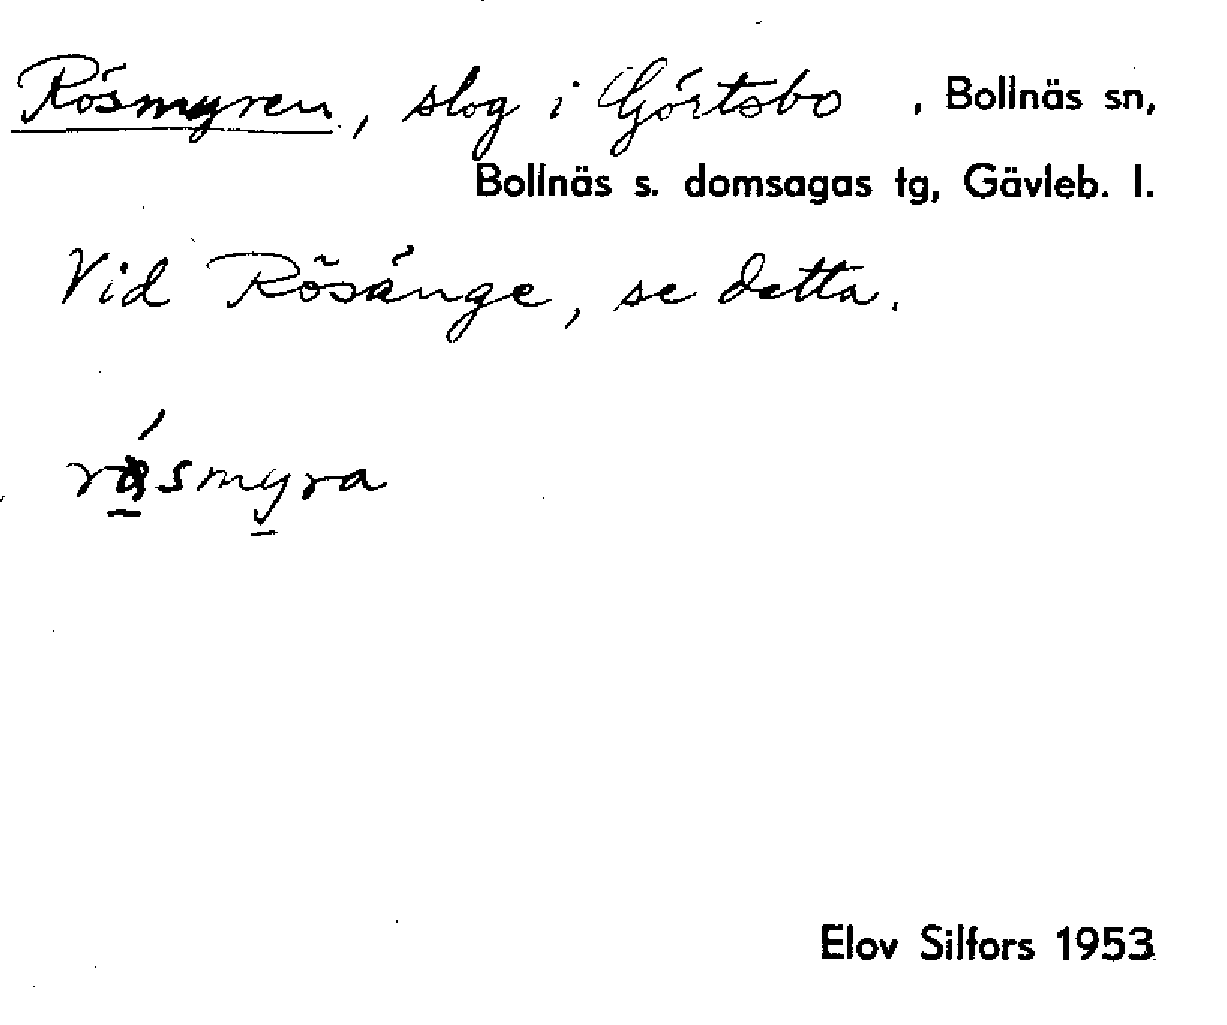 Rösmyren, slog i Görtsbo, Bollnäs sn,
Bollnäs s. domsagas tg, Gävleb. l.
Vid Rösänge, se detta.
rösmyra
Elov Silfors 1953